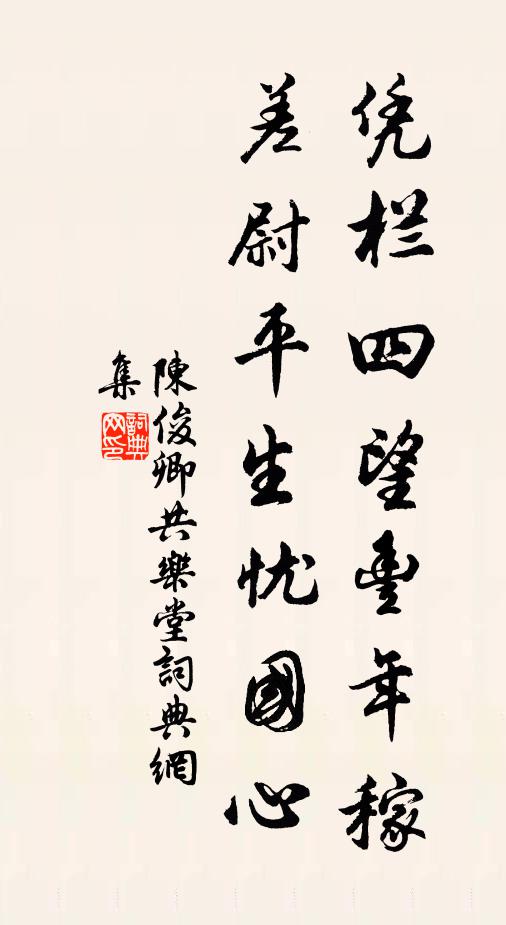 凭栏四望豊年稼
差尉平生忧國心
陳俊卿共樂堂詞典網
集
詞典网印